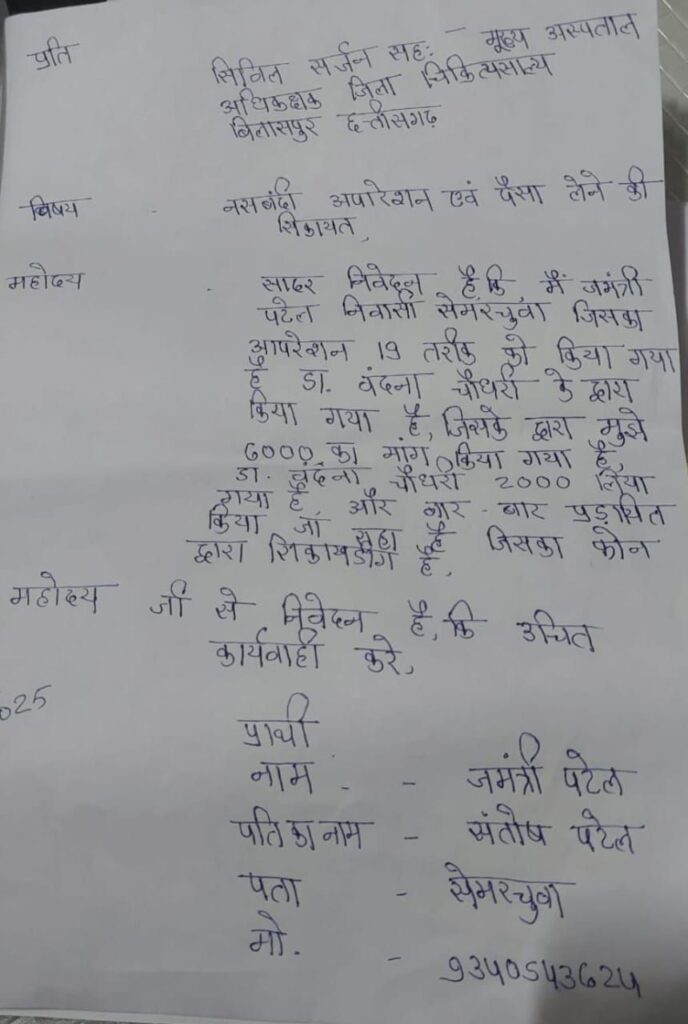 प्रति
सिविल सर्जन सह: - मूख्य अस्पताल
अधिकक्षक जिला चिकित्यसाल्य
बिलासपुर छत्तीसगढ़
विषय - नसबंदी अपारेशन एवं पैसा लेने की
शिकायत,
महोदय - सादर निवेदन है, कि, मैं जमंत्री
पटेल निवासी सेमरचुवा जिसका
आपरेशन 19 तरीक को किया गया
है डा. वंदना चौधरी के द्वारा
किया गया है, जिसके द्वारा मुझे
6000 का मांग किया गया है,
डा. वंदना चौधरी 2000 लिया
गया है, और बार - बार प्रड़ाचित
किया जा रहा है जिसका फोन
द्वारा रिकायडींग है,
महोदय जी से निवेदन है, कि उचित
कार्यवाही करे,
025
प्रार्थी
नाम - - जमंत्री पटेल
पति का नाम - संतोष पटेल
पता - सेमरचुवा
मो. - 9340543624